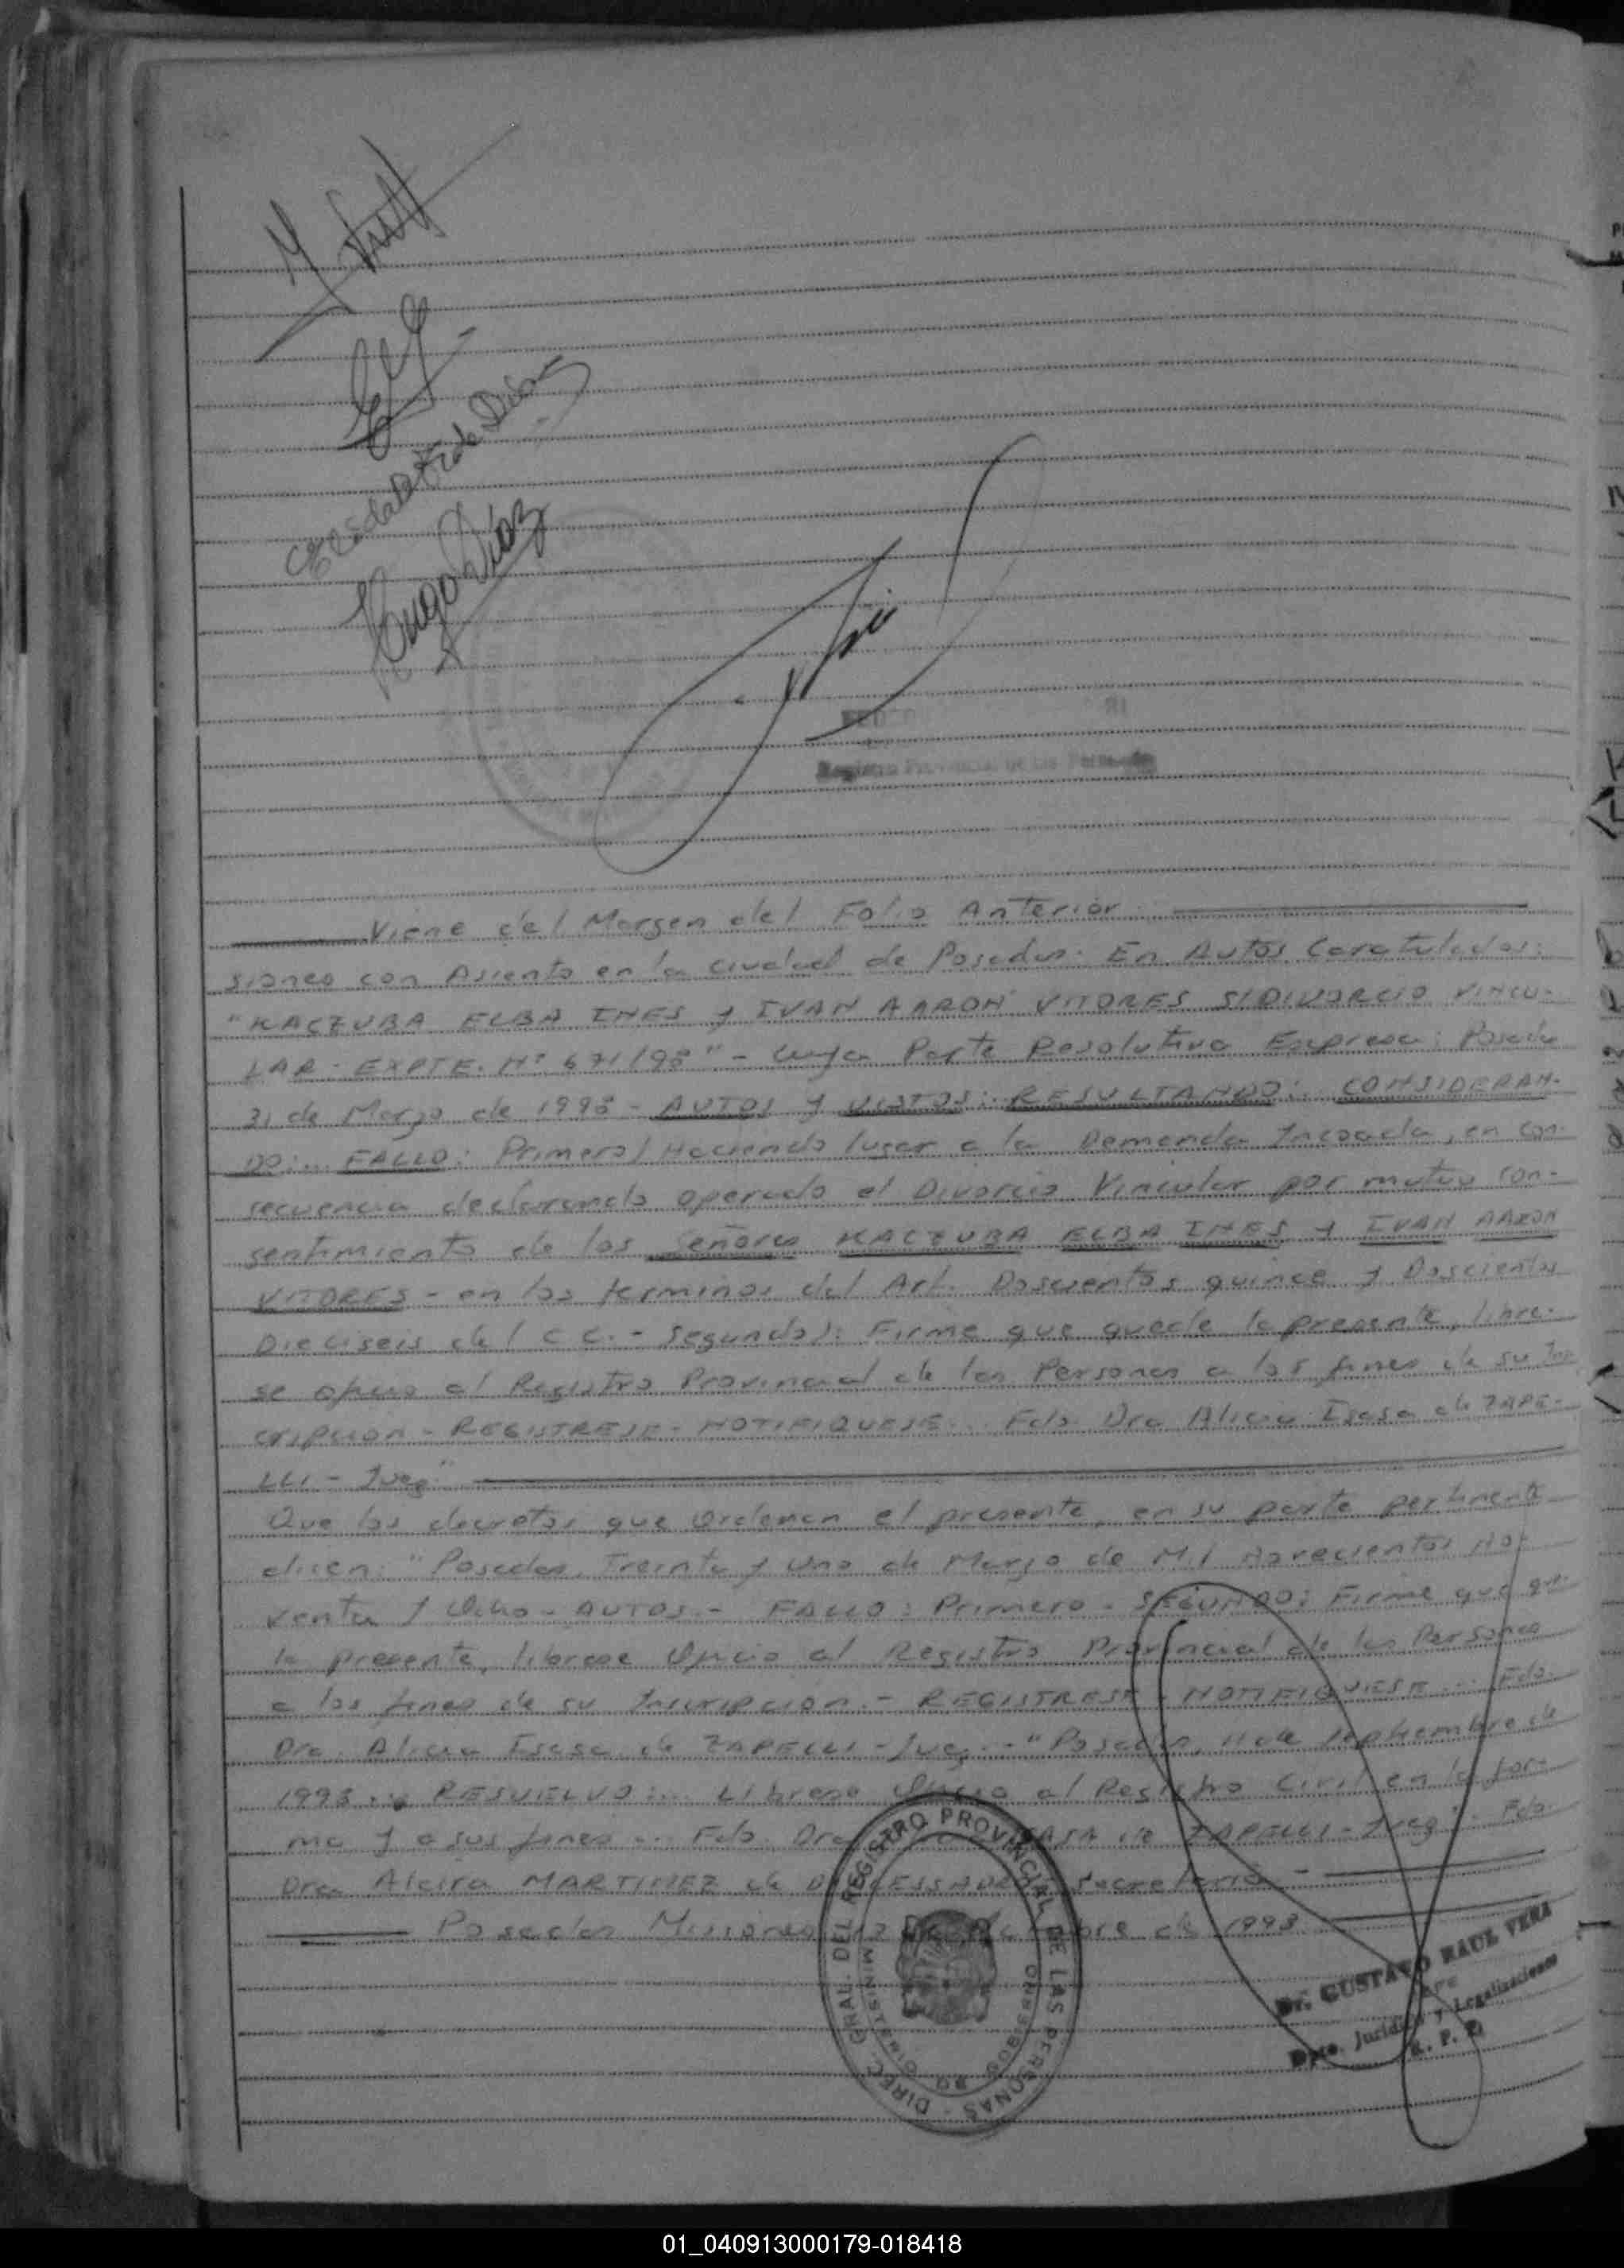 Hugo Díaz
Registro Provincial de las Personas
Viene del Margen del Folio Anterior
siones con Asiento en la ciudad de Posadas. En Autos Caratulados:
"KACZUBA ELBA INES y IVAN AARON VITORES S/DIVORCIO VINCU-
LAR - EXPTE. Nº 671/98" - cuya Parte Resolutiva Expresa: Posadas
31 de Marzo de 1998 - AUTOS y VISTOS: RESULTANDO: CONSIDERAN-
DO:... FALLO: Primero) Haciendo lugar a la Demanda Incoada, en con-
secuencia declarando operado el Divorcio Vincular por mutuo con-
sentimiento de los Señores KACZUBA ELBA INES y IVAN AARON
VITORES - en los terminos del Art. Doscientos quince y Doscientos
Dieciseis del C.C. - Segundo): Firme que quede la presente, libre-
se oficio al Registro Provincial de las Personas a los fines de su Ins
cripcion - REGISTRESE - NOTIFIQUESE... Fdo. Dra Alicia Isasa de ZAPE-
LLI - Juez"
Que los decretos que Ordenan el presente, en su parte pertinente
dicen: "Posadas, Treinta y uno de Marzo de Mil Novecientos No-
venta y Ocho - AUTOS.- FALLO: Primero - SEGUNDO: Firme que que
la presente, librese Oficio al Registro Provincial de las Personas
a los fines de su Inscripcion.- REGISTRESE - NOTIFIQUESE... Fdo.
Dra. Alicia Isasa de ZAPELLI - Juez.- "Posadas, 11 de Septiembre de
1998... RESUELVO:... Librese Oficio al Registro Civil en la for-
ma y a sus fines... Fdo. Dra ISASA de ZAPELLI - Juez" - Fdo.
Dra Alcira MARTINEZ de Secretaria -
Posadas Misiones de 1998
DIREC. GRAL. DEL REGISTRO PROVINCIAL DE LAS PERSONAS
MINISTERIO DE GOBIERNO
Dr. GUSTAVO RAUL VERA
JEFE
Dpto. Juridico y Legalizaciones
R. P. P.
01_040913000179-018418